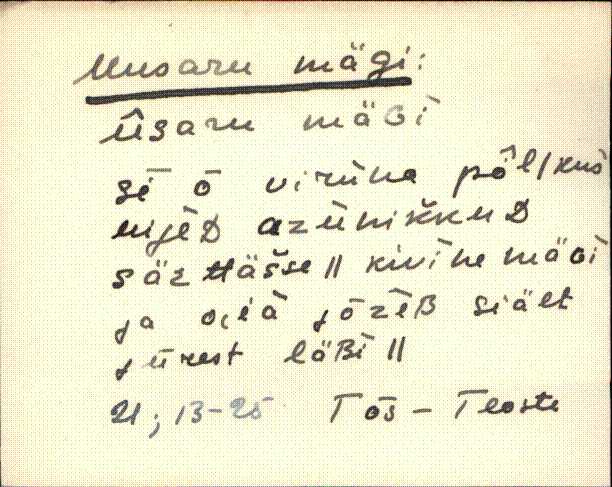 Uusaru mägi:
ûsaru mäɢì
sē ō virūna pôl / kus
nijēD azūnikkuD
säzttäšse || kivine mäɢi
ja ojà jōzēB siält
jūrest läBi ||
21; 13-25 Tōs - Teoste